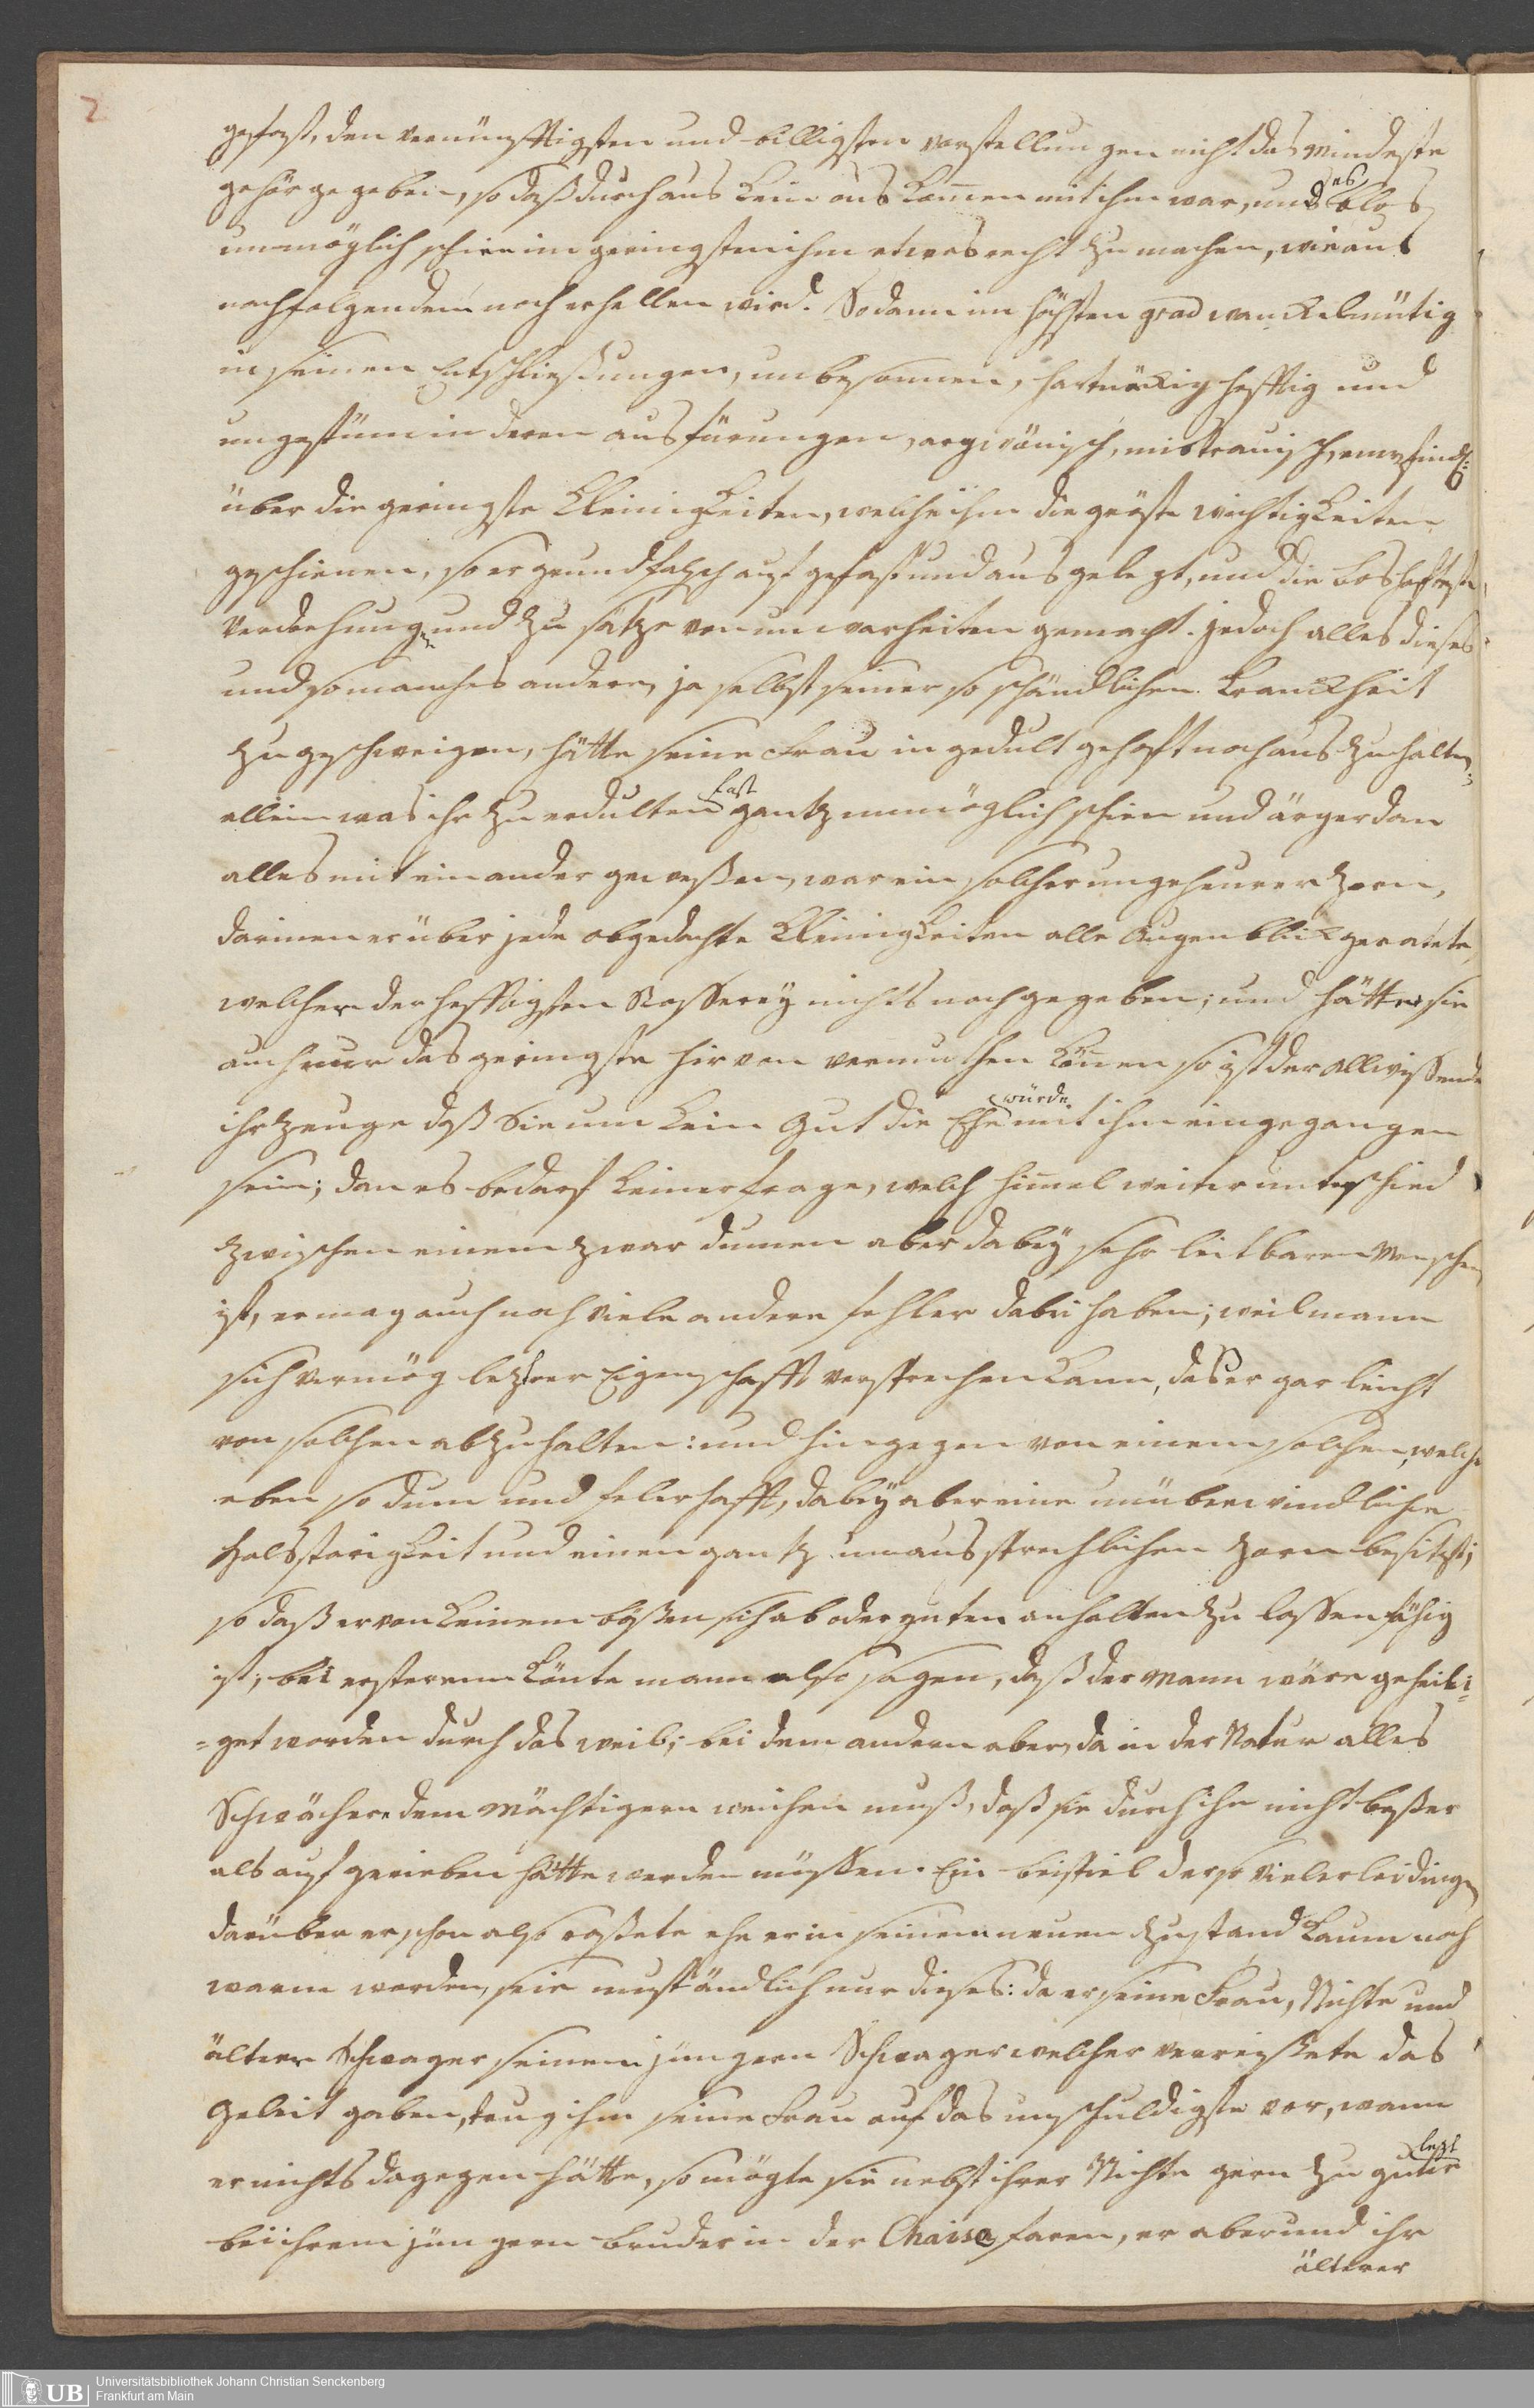 2
gefast, den vernünfftigsten und billigsten vorstellungen nicht das mindeste
gehör gegeben, so daß durchaus kein auskommen mit ihm war, und es blos
unmöglich schien im geringsten ihm etwas recht zu machen, wie aus
nachfolgendem noch erhellen wird. Sodann im höchsten grad wanckelmütig
in seinen Entschließungen, unbesonnen, hartnäckig hefftig und
ungestüm in deren ausfürungen, argwönisch, mistrauisch, empfindl:
über die geringste Kleinigkeiten, welche ihm die gröste wichtigkeiten
geschienen, so er grundfalsch aufgefast und ausgelegt, und die boshafteste
verdrehungen und zusätze von unwarheiten gemacht. jedoch alles dieses
und so manches andere, ja selbst seiner so schändlichen Kranckheit
zu geschweigen, hätte seine Frau in gedult gehofft noch aus zu halten;
allein was ihr zu erdulten fast gantz unmöglich schien und ärger dan
alles mit einander gewesen, war ein solcher ungeheurer zorn,
darinnen er über jede obgedachte Kleinigkeiten alle Augenblick geratete,
welcher der hefftigsten Rasserey nichts nachgegeben; und hätte sie
auch nur das geringste hirvon vermuthen können so ist der Allwissende
ihr zeuge daß Sie um kein Gut die Ehe mit ihm würde eingegangen
sein; dan es bedarf keiner frage, welch himmel weiter unterschied
zwischen einem zwar dummen aber dabey sehr leitbaren Menschen
ist, er mag auch noch viele andere fehler dabei haben; weil mann
sich vermög lezterer Eigenschafft versprechen kann, das er gar leicht
von solchen abzuhalten: und hingegen von einem solchen, welcher
eben so dum und felerhafft, dabey aber eine unüberwindliche
Halsstarigkeit und einen gantz unaussprechlichen zorn besitzt;
so daß er von keinem bößen sich ab oder guten anhalten zu lassen fähig
ist; bei ersterem könte mann also sagen, daß der Mann wäre geheili=
=get worden durch das weib; bei dem andern aber, da in der Natur alles
Schwächere dem Mächtigern weichen muß, daß sie durch ihn nicht beßer
als aufgerieben hätte werden müssen. Ein beispiel der so vielerlei dingen
darüber er schon also rasete ehe er in seinem neuen zustand kaum noch
warm worden, seie umständlich nur dieses: da er seine Frau, Nichte und
älterer Schwager seinem jüngern Schwager welcher verreisete das
Geleit gaben, trug ihm seine Frau auf das unschuldigste vor, wann
er nichts dagegen hätte, so mögte sie nebst ihrer Nichte gern zu guter lezt
bei ihrem jüngern bruder in der Chaise faren, er aber und ihr
älterer
UB Universitätsbibliothek Johann Christian Senckenberg
Frankfurt am Main